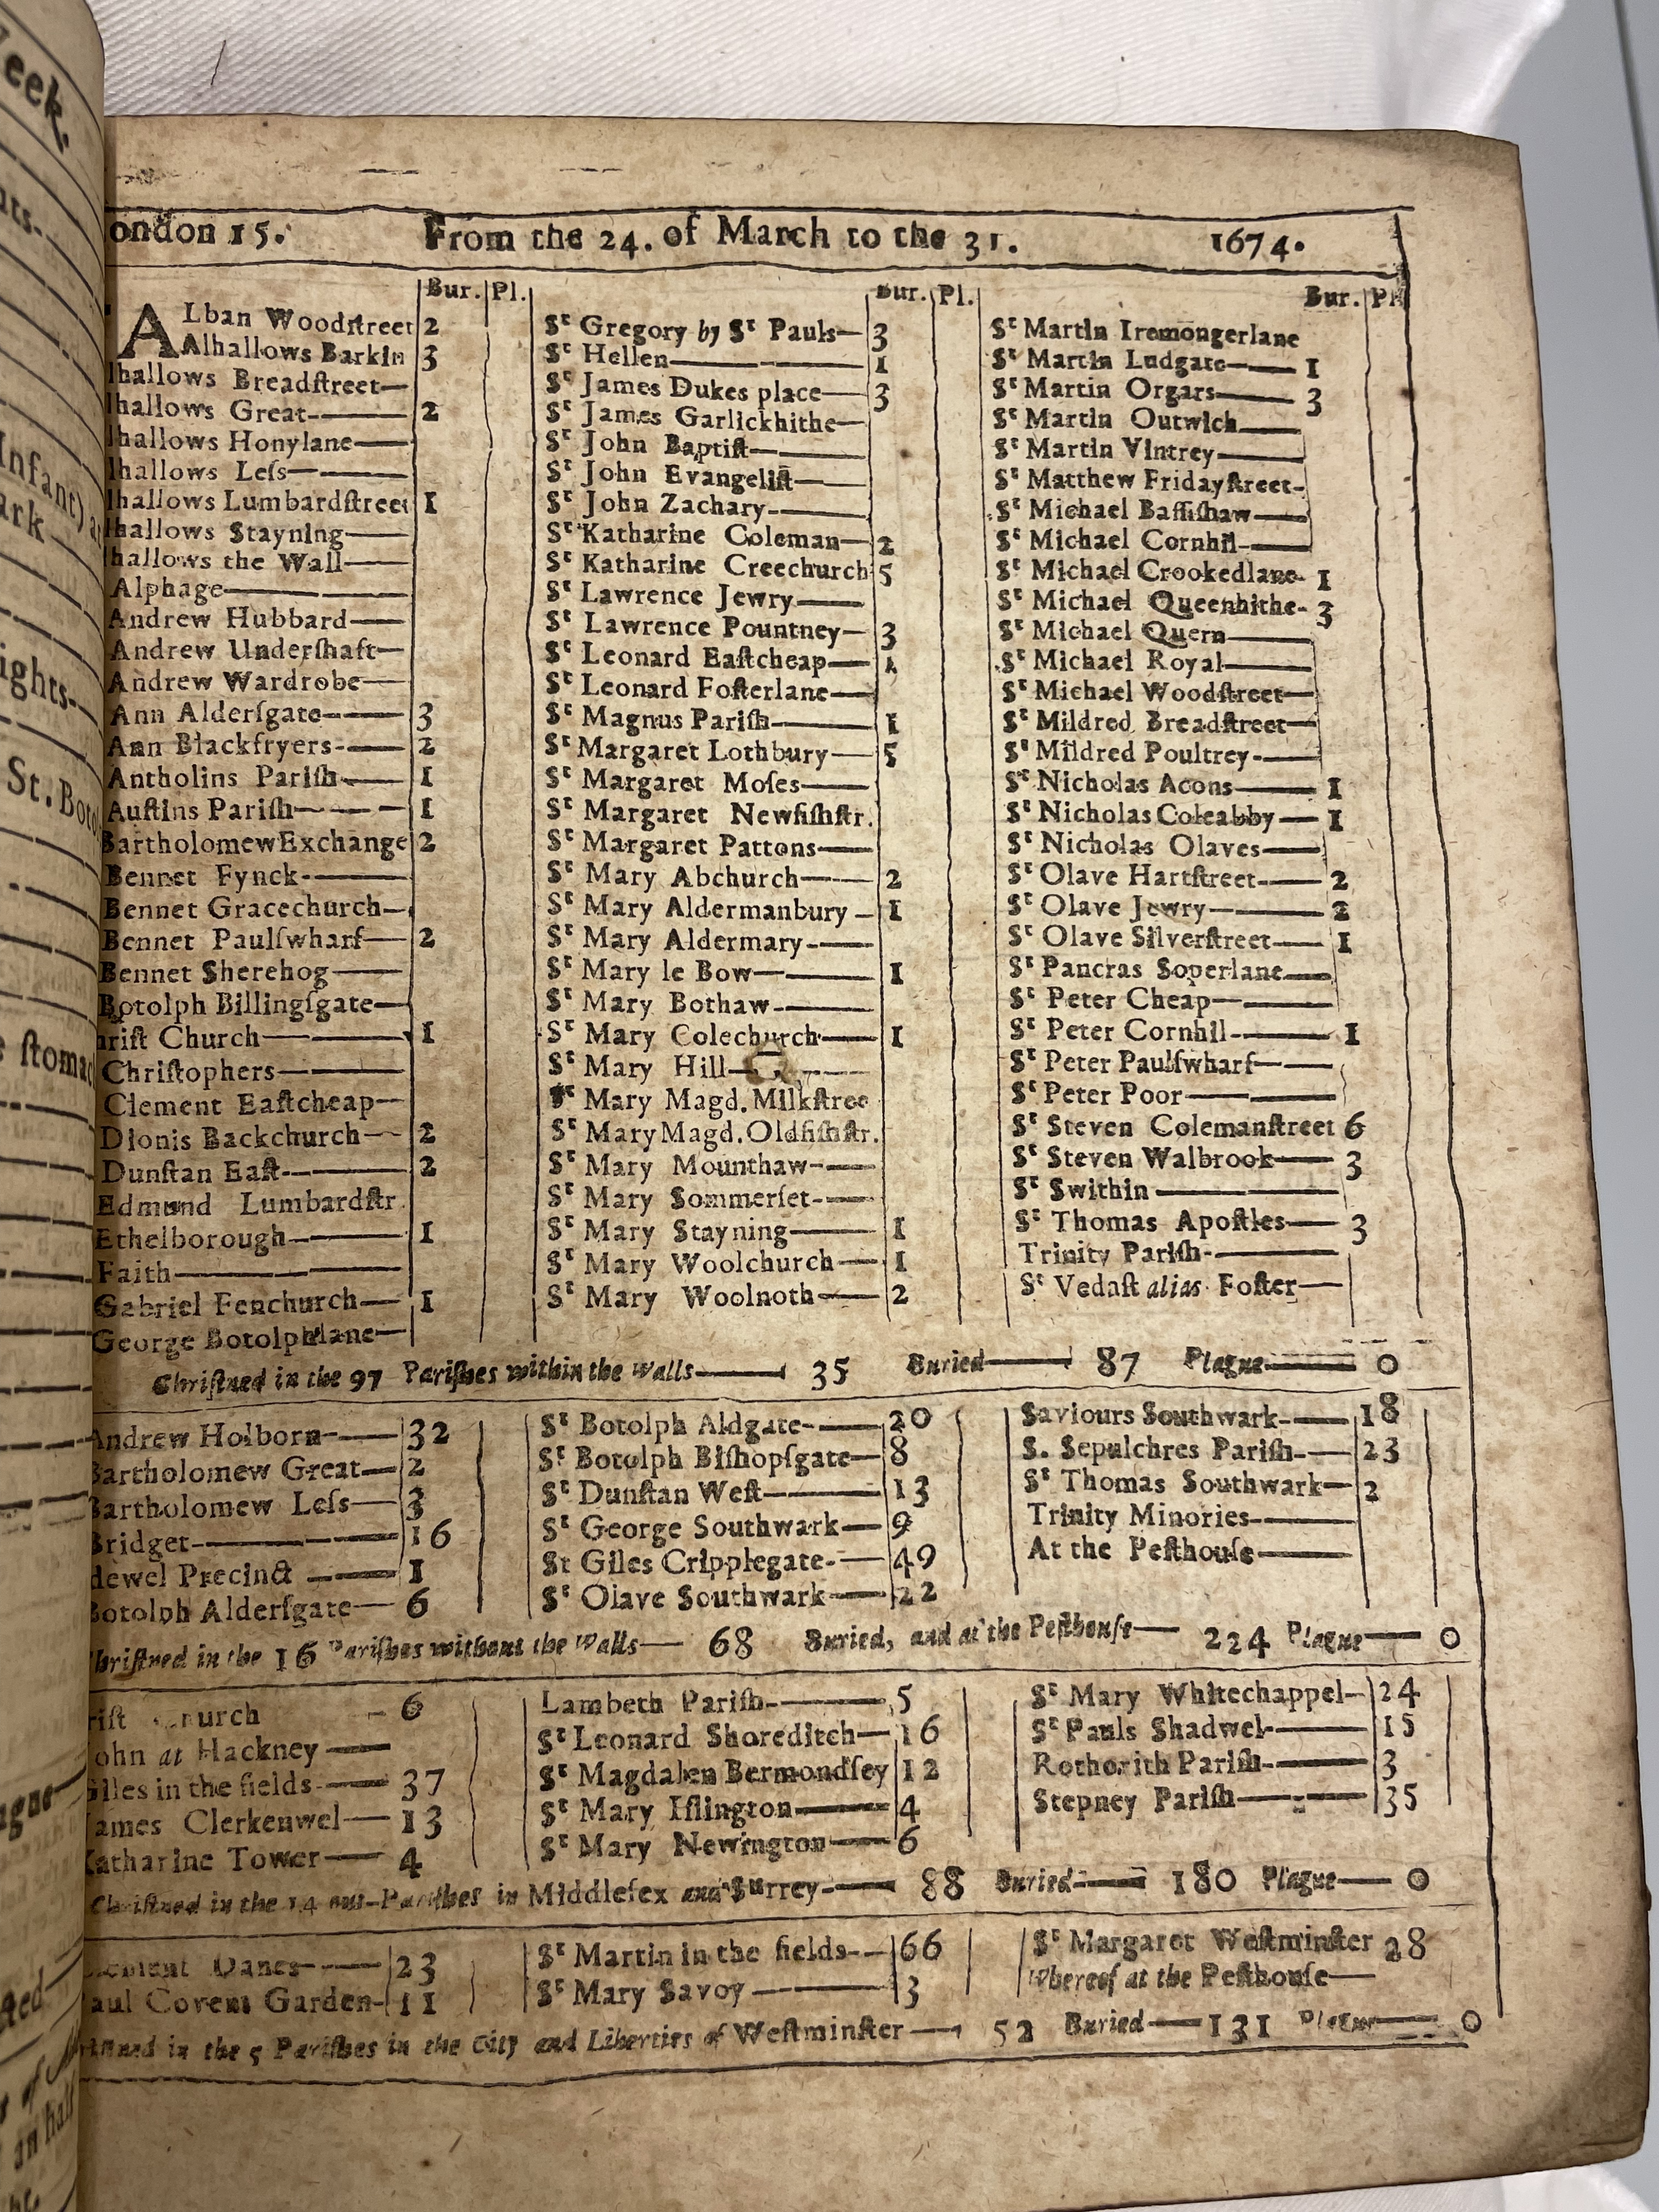 eek.
ats-
Infant)
ark
ights-
St. Boto
ſtomac
ague
ſted
of
an half
ondon 15. From the 24. of March to the 31. 1674.
Bur. Pl.
ALban Woodſtreet 2
Alhallows Barkin 3
lhallows Breadſtreet—
lhallows Great-—— 2
lhallows Honylane——
lhallows Leſs————
lhallows Lumbardſtreet 1
lhallows Stayning——
lhallows the Wall——
Alphage————
Andrew Hubbard——
Andrew Underſhaft—
Andrew Wardrobe——
Ann Alderſgate-—— 3
Ann Blackfryers-—— 2
Antholins Pariſh—— 1
Auſtins Pariſh—— 1
BartholomewExchange 2
Bennet Fynck-——
Bennet Gracechurch—
Bennet Paulſwharf— 2
Bennet Sherehog——
Botolph Billingſgate—
hriſt Church———— 1
Chriſtophers————
Clement Eaſtcheap—
Dionis Backchurch— 2
Dunſtan Eaſt-——— 2
Edmund Lumbardſtr.
Ethelborough-——— 1
Faith—————
Gabriel Fenchurch— 1
George Botolphlane—
Bur. Pl.
St Gregory by St Pauls— 3
St Hellen———— 1
St James Dukes place— 3
St James Garlickhithe—
St John Baptiſt———
St John Evangeliſt——
St John Zachary-——
St Katharine Coleman— 2
St Katharine Creechurch 5
St Lawrence Jewry——
St Lawrence Pountney— 3
St Leonard Eaſtcheap— 1
St Leonard Foſterlane—
St Magnus Pariſh—— 1
St Margaret Lothbury— 5
St Margaret Moſes——
St Margaret Newfiſhſtr.
St Margaret Pattons——
St Mary Abchurch—— 2
St Mary Aldermanbury— 1
St Mary Aldermary-——
St Mary le Bow——— 1
St Mary Bothaw-——
St Mary Colechurch—— 1
St Mary Hill————
St Mary Magd. Milkſtree
St Mary Magd. Oldfiſhſtr.
St Mary Mounthaw-——
St Mary Sommerſet-——
St Mary Stayning—— 1
St Mary Woolchurch— 1
St Mary Woolnoth—— 2
Bur. Pl
St Martin Iremongerlane
St Martin Ludgate—— 1
St Martin Orgars—— 3
St Martin Outwich——
St Martin Vintrey——
St Matthew Fridayſtreet-
St Michael Baſſiſhaw——
St Michael Cornhil-——
St Michael Crookedlane- 1
St Michael Queenhithe- 3
St Michael Quern——
St Michael Royal——
St Michael Woodſtreet—
St Mildred Breadſtreet—
St Mildred Poultrey-——
St Nicholas Acons—— 1
St Nicholas Coleabby— 1
St Nicholas Olaves——
St Olave Hartſtreet-—— 2
St Olave Jewry——— 2
St Olave Silverſtreet—— 1
St Pancras Soperlane——
St Peter Cheap———
St Peter Cornhil-—— 1
St Peter Paulſwharf——
St Peter Poor————
St Steven Colemanſtreet 6
St Steven Walbrook—— 3
St Swithin————
St Thomas Apoſtles—— 3
Trinity Pariſh-———
St Vedaſt alias Foſter—
Chriſtned in the 97 Pariſhes within the Walls—— 35 Buried—— 87 Plague—— 0
Andrew Holborn-—— 32
Bartholomew Great— 2
Bartholomew Leſs— 3
Bridget-———— 16
dewel Precinct —— 1
Botolph Alderſgate— 6
St Botolph Aldgate-—— 20
St Botolph Biſhopſgate— 8
St Dunſtan Weſt——— 13
St George Southwark— 9
St Giles Cripplegate-— 49
St Olave Southwark—— 22
Saviours Southwark-—— 18
S. Sepulchres Pariſh-— 23
St Thomas Southwark— 2
Trinity Minories-——
At the Peſthouſe——
hriſtned in the 16 Pariſhes without the Walls— 68 Buried, and at the Peſthouſe— 224 Plague—— 0
riſt Church - 6
ohn at Hackney——
Giles in the fields-—— 37
ames Clerkenwel—— 13
Katharine Tower—— 4
Lambeth Pariſh-——— 5
St Leonard Shoreditch— 16
St Magdalen Bermondſey 12
St Mary Iſlington—— 4
St Mary Newington—— 6
St Mary Whitechappel— 24
St Pauls Shadwel-—— 15
Rothorith Pariſh-—— 3
Stepney Pariſh——— 35
Chriſtned in the 14 out-Pariſhes in Middleſex and Surrey-—— 88 Buried—— 180 Plague—— 0
Clement Danes-—— 23
aul Covent Garden- 11
St Martin in the fields-— 66
St Mary Savoy ——— 3
St Margaret Weſtminſter 28
Whereof at the Peſthouſe——
ſtned in the 5 Pariſhes in the City and Liberties of Weſtminſter—— 52 Buried—— 131 Plague—— 0